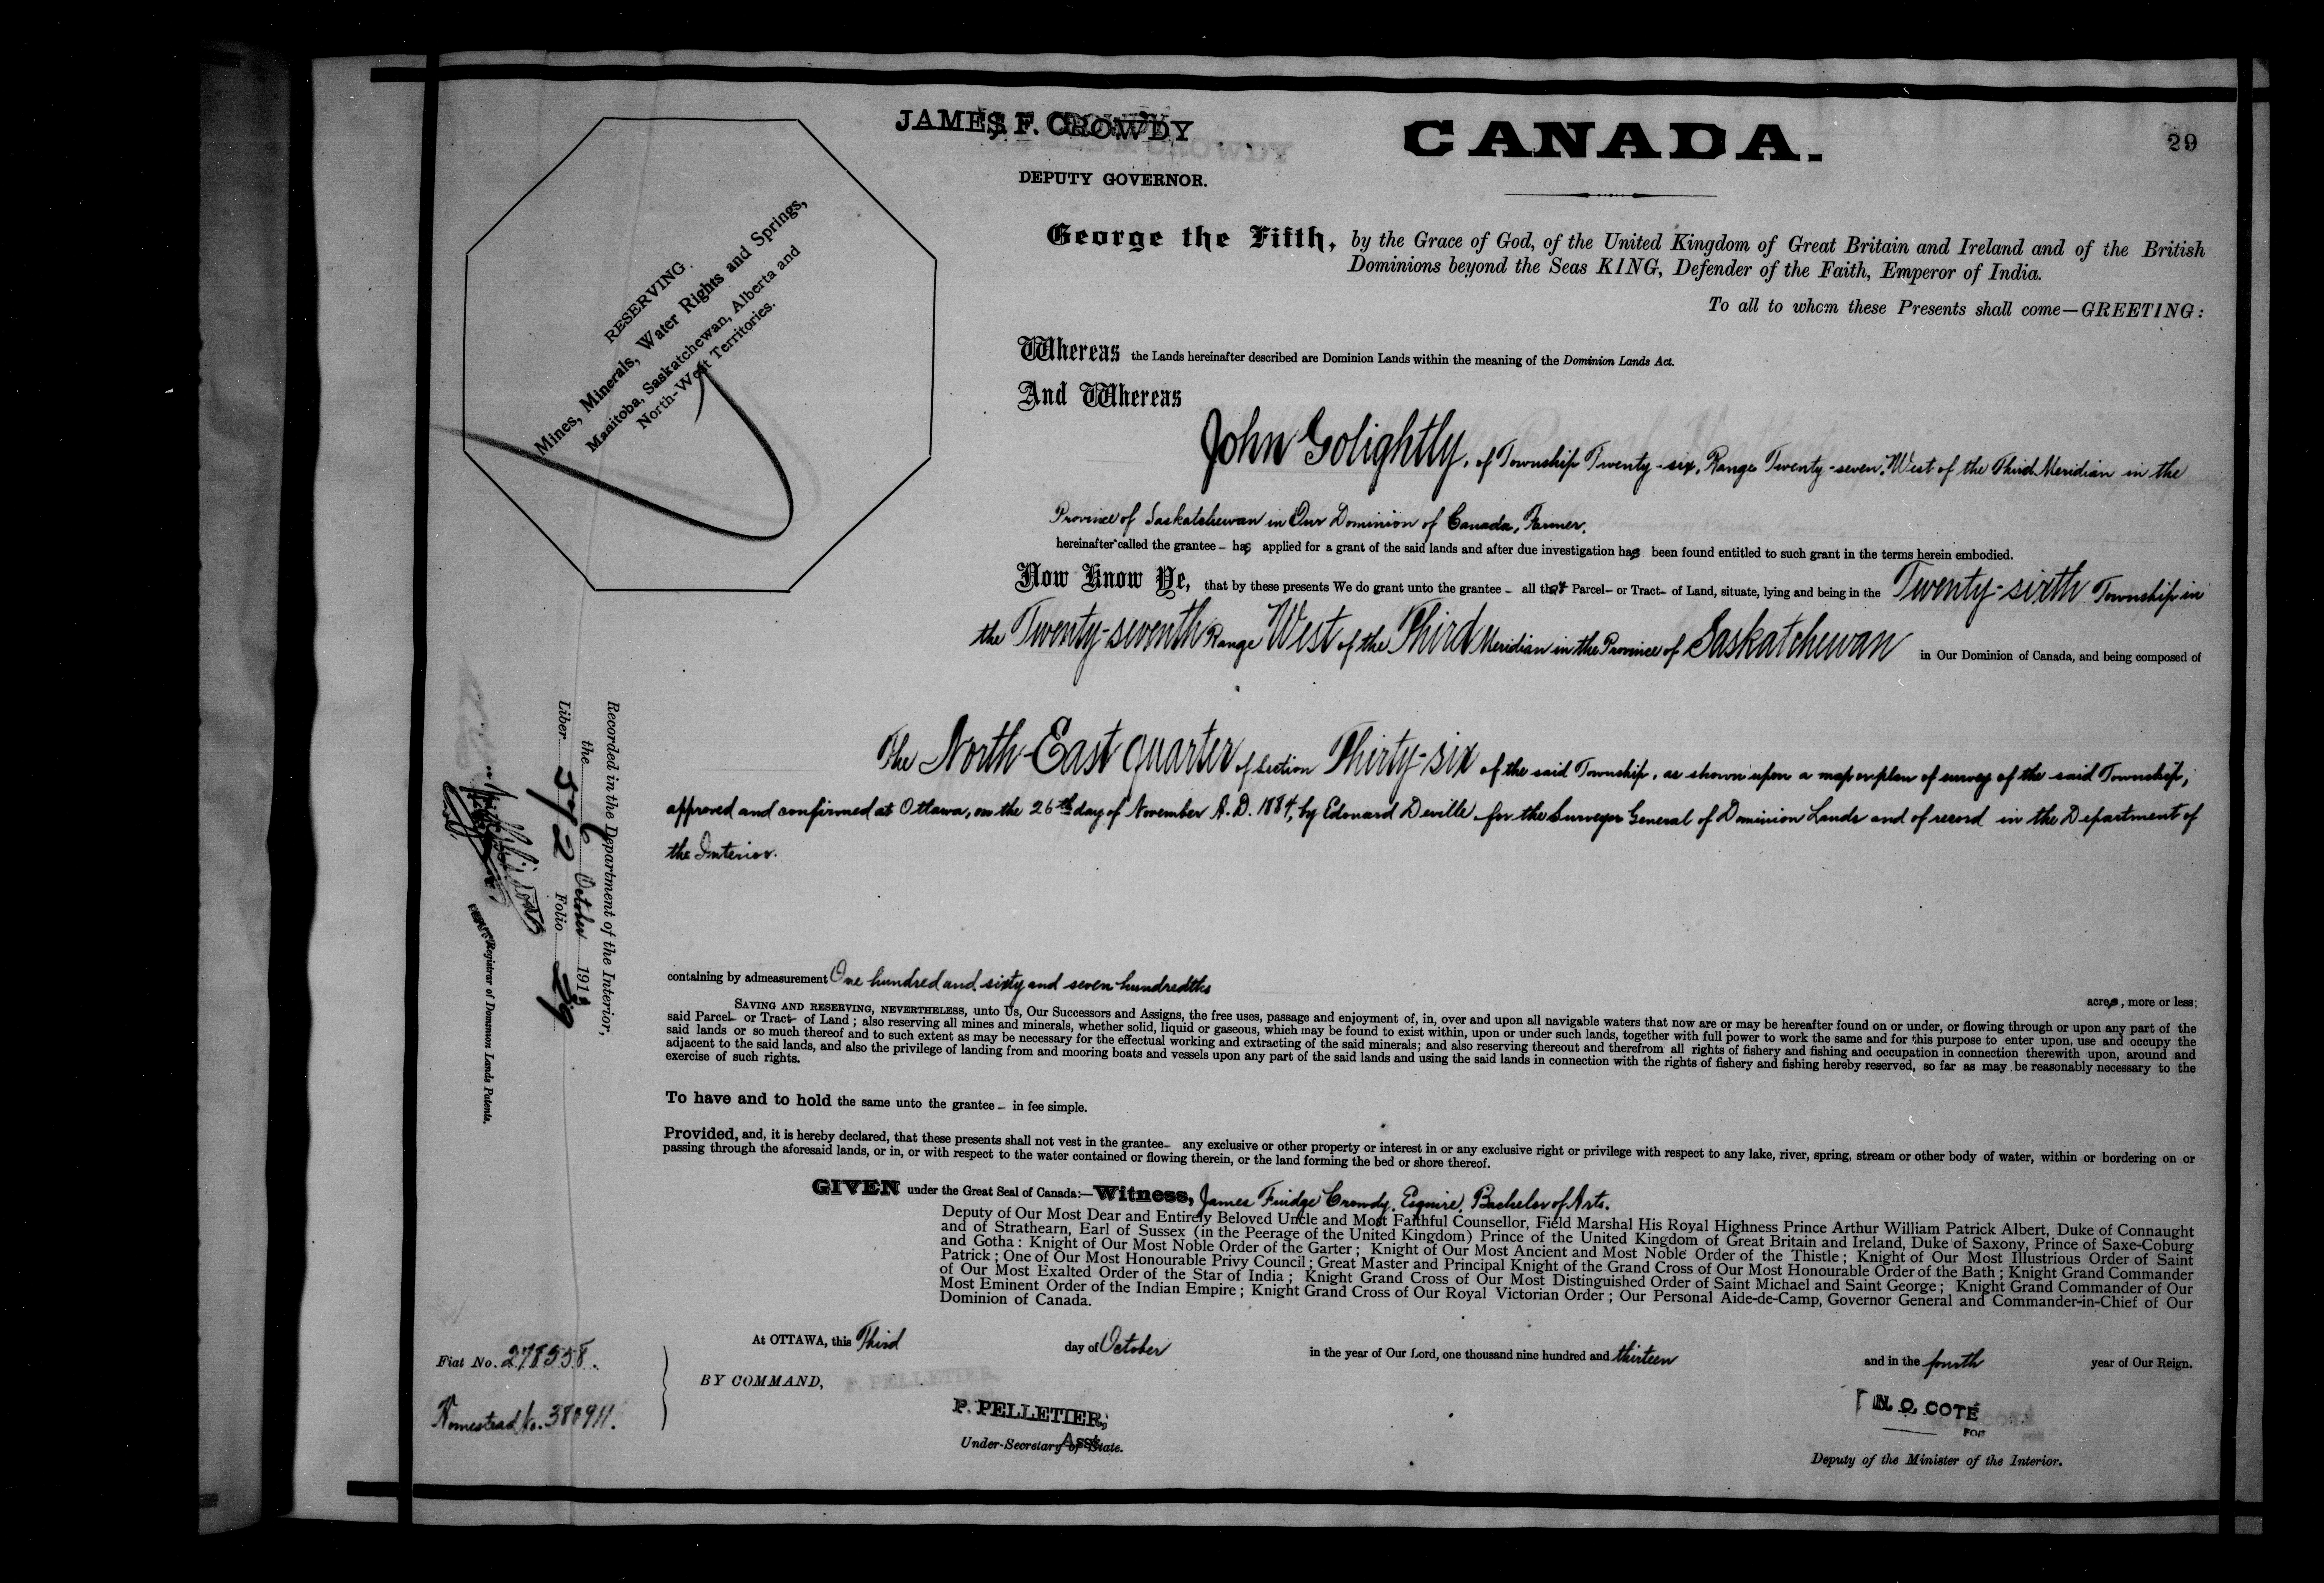 JAMES F. CROWDY
DEPUTY GOVERNOR.
CANADA.
29
RESERVING
Mines, Minerals, Water Rights and Springs,
Manitoba, Saskatchewan, Alberta and
North-West Territories.
George the Fifth, by the Grace of God, of the United Kingdom of Great Britain and Ireland and of the British
Dominions beyond the Seas KING, Defender of the Faith, Emperor of India.
To all to whom these Presents shall come—GREETING:
Whereas the Lands hereinafter described are Dominion Lands within the meaning of the Dominion Lands Act.
And Whereas
John Golightly, of Township Twenty-six, Range Twenty-seven, West of the Third Meridian in the
Province of Saskatchewan in Our Dominion of Canada, Farmer.
hereinafter called the grantee – has applied for a grant of the said lands and after due investigation has been found entitled to such grant in the terms herein embodied.
Now Know Ye, that by these presents We do grant unto the grantee – all that Parcel– or Tract– of Land, situate, lying and being in the Twenty-sixth Township in
the Twenty-seventh Range West of the Third Meridian in the Province of Saskatchewan in Our Dominion of Canada, and being composed of
The North East quarter of section Thirty-six of the said Township, as shown upon a map or plan of survey of the said Township,
approved and confirmed at Ottawa, on the 26th day of November A.D. 1884, by Edouard Deville for the Surveyor General of Dominion Lands and of record in the Department of
the Interior.
containing by admeasurement One hundred and sixty and seven hundredths
acres, more or less;
SAVING AND RESERVING, NEVERTHELESS, unto Us, Our Successors and Assigns, the free uses, passage and enjoyment of, in, over and upon all navigable waters that now are or may be hereafter found on or under, or flowing through or upon any part of the
said Parcel– or Tract– of Land; also reserving all mines and minerals, whether solid, liquid or gaseous, which may be found to exist within, upon or under such lands, together with full power to work the same and for this purpose to enter upon, use and occupy the
said lands or so much thereof and to such extent as may be necessary for the effectual working and extracting of the said minerals; and also reserving thereout and therefrom all rights of fishery and fishing and occupation in connection therewith upon, around and
adjacent to the said lands, and also the privilege of landing from and mooring boats and vessels upon any part of the said lands and using the said lands in connection with the rights of fishery and fishing hereby reserved, so far as may be reasonably necessary to the
exercise of such rights.
To have and to hold the same unto the grantee – in fee simple.
Provided, and, it is hereby declared, that these presents shall not vest in the grantee– any exclusive or other property or interest in or any exclusive right or privilege with respect to any lake, river, spring, stream or other body of water, within or bordering on or
passing through the aforesaid lands, or in, or with respect to the water contained or flowing therein, or the land forming the bed or shore thereof.
GIVEN under the Great Seal of Canada:—Witness, James Fuidge Crowdy, Esquire, Bachelor of Arts.
Deputy of Our Most Dear and Entirely Beloved Uncle and Most Faithful Counsellor, Field Marshal His Royal Highness Prince Arthur William Patrick Albert, Duke of Connaught
and of Strathearn, Earl of Sussex (in the Peerage of the United Kingdom) Prince of the United Kingdom of Great Britain and Ireland, Duke of Saxony, Prince of Saxe-Coburg
and Gotha: Knight of Our Most Noble Order of the Garter; Knight of Our Most Ancient and Most Noble Order of the Thistle; Knight of Our Most Illustrious Order of Saint
Patrick; One of Our Most Honourable Privy Council; Great Master and Principal Knight of the Grand Cross of Our Most Honourable Order of the Bath; Knight Grand Commander
of Our Most Exalted Order of the Star of India; Knight Grand Cross of Our Most Distinguished Order of Saint Michael and Saint George; Knight Grand Commander of Our
Most Eminent Order of the Indian Empire; Knight Grand Cross of Our Royal Victorian Order; Our Personal Aide-de-Camp, Governor General and Commander-in-Chief of Our
Dominion of Canada.
At OTTAWA, this Third day of October in the year of Our Lord, one thousand nine hundred and thirteen and in the fourth year of Our Reign.
BY COMMAND,
P. PELLETIER,
Asst.
Under-Secretary of State.
N. O. COTÉ
FOR
Deputy of the Minister of the Interior.
Fiat No. 278558.
Homestead No. 380911.
Recorded in the Department of the Interior,
the 6 October 1913
Liber 572 Folio 29
Registrar of Dominion Lands Patents.